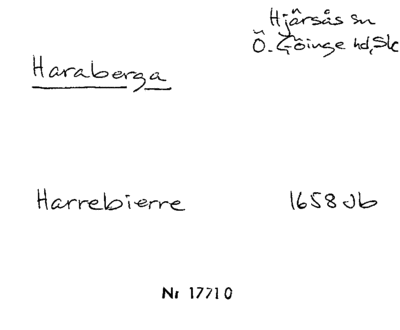 Hjärsås sn
Ö. Göinge hd, Sk
Haraberga
Harrebierre 1658 Jb
Nr 17710